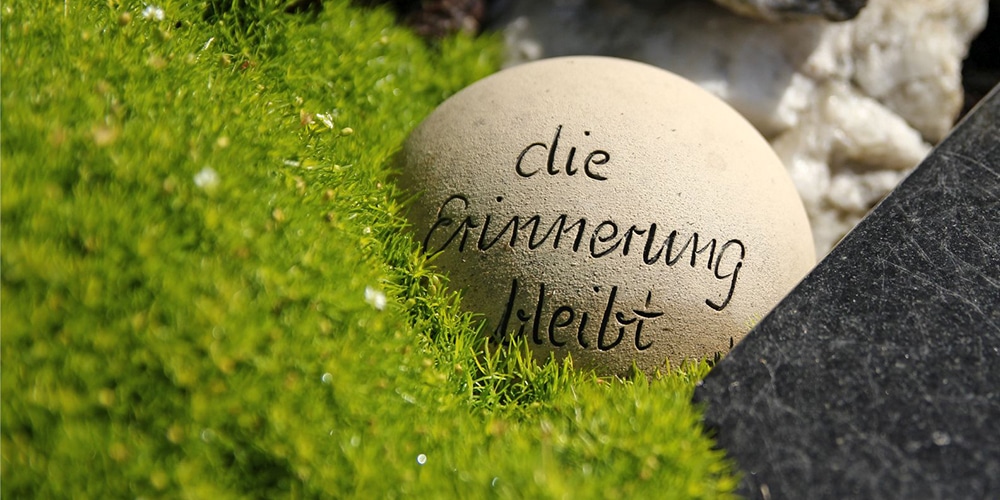 die
Erinnerung
bleibt